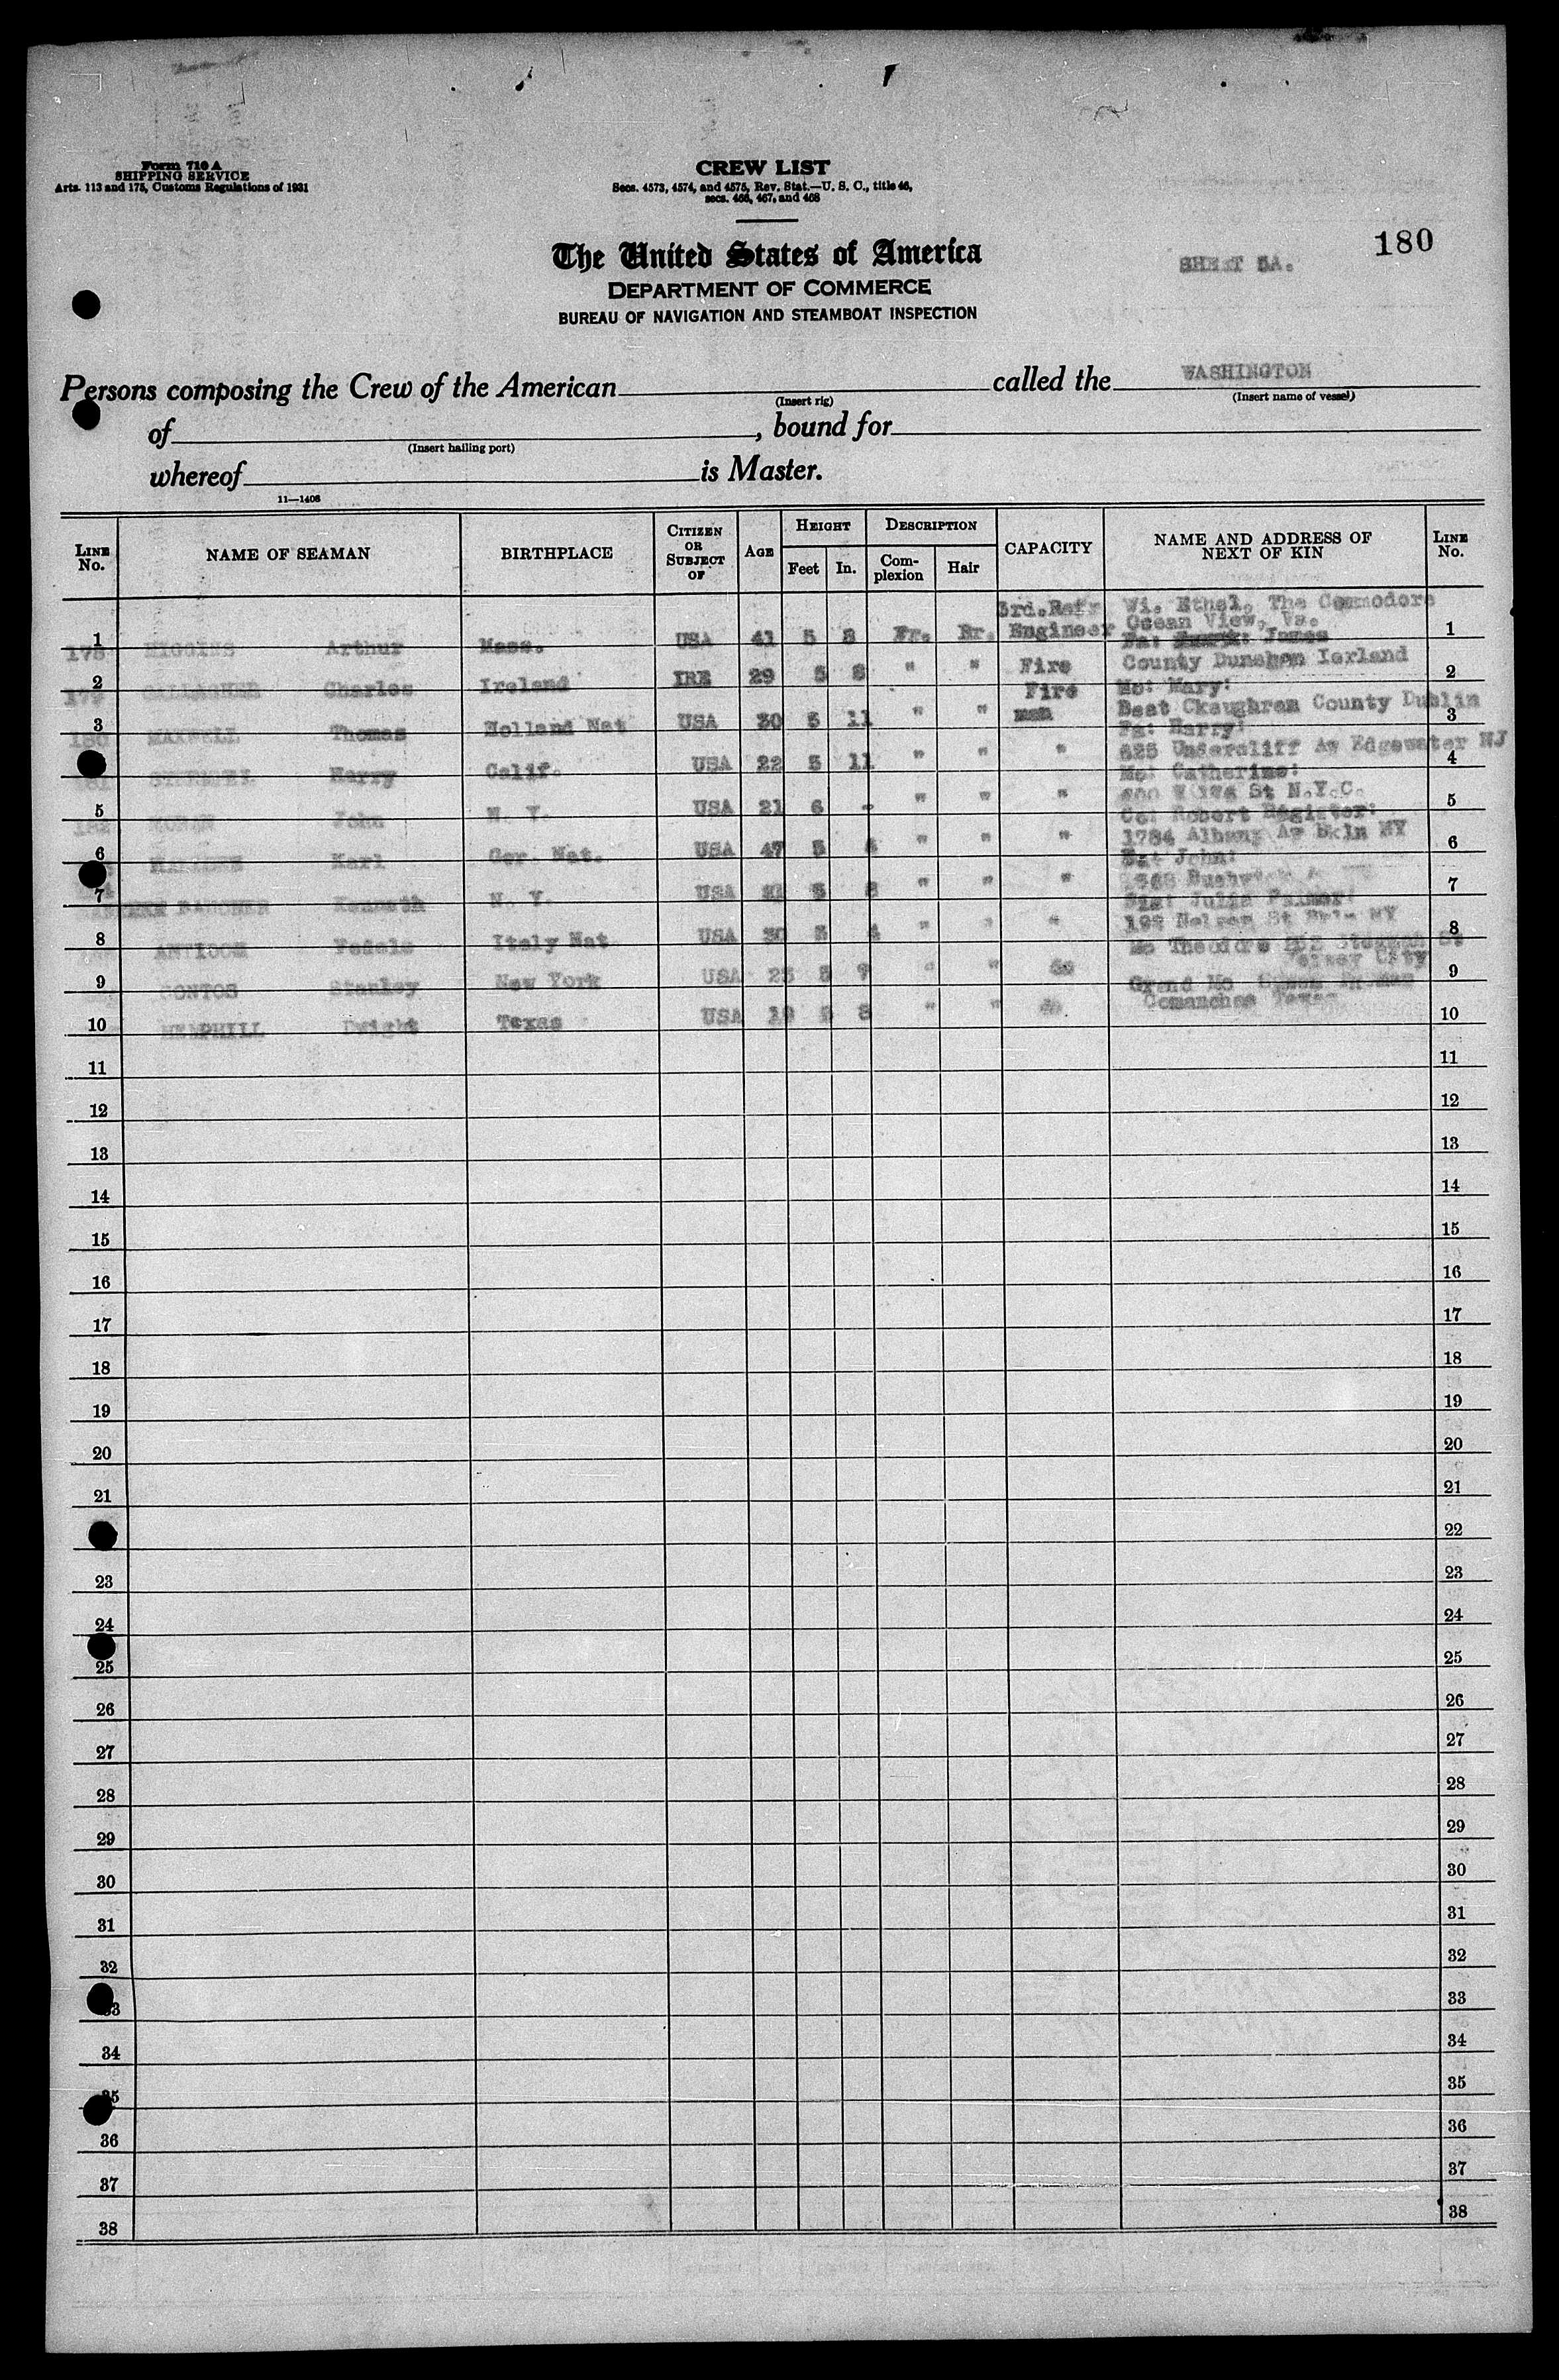 Form 710 A
SHIPPING SERVICE
Arts. 113 and 175, Customs Regulations of 1931
CREW LIST
Secs. 4573, 4574, and 4575, Rev. Stat.—U. S. C., title 46,
secs. 466, 467, and 468
The United States of America
DEPARTMENT OF COMMERCE
BUREAU OF NAVIGATION AND STEAMBOAT INSPECTION
SHEET 5A.
180
Persons composing the Crew of the American called the WASHINGTON
(Insert rig) (Insert name of vessel)
of , bound for
(Insert hailing port)
whereof is Master.
11—1406
LINE No. NAME OF SEAMAN BIRTHPLACE CITIZEN OR SUBJECT OF AGE HEIGHT Feet In. DESCRIPTION Complexion Hair CAPACITY NAME AND ADDRESS OF NEXT OF KIN LINE No.
3rd.Refr Wi. Ethel, The Commodore
1 178 HIGGINS Arthur Mass. USA 41 5 8 Fr. Br. Engineer Ocean View, Va. 1
Fa: James
2 179 GALLAGHER Charles Ireland IRE 29 5 8 " " Fire County Ierland 2
Fire Mo: Mary:
3 180 MAXWELL Thomas Holland Nat USA 30 5 11 " " man County Dublin 3
Fa: Harry:
181 Harry Calif. USA 22 5 11 " " " 625 Undercliff Av Edgewater NJ 4
Mo: Catherine:
5 182 MORAN John N. Y. USA 21 6 - " " " St N.Y.C. 5
Robert Register:
6 Karl Ger. Nat. USA 47 5 4 " " " 1784 Albany Av Bkln NY 6
John:
7 Kenneth N. Y. USA 21 5 8 " " " Bushwick 7
Sis: Julia Palmer:
8 Fedele Italy Nat USA 30 5 4 " " " 192 Nelson St Bkln NY 8
Mo Theodore St
9 CONTOS Stanley New York USA 25 5 9 " " do Jersey City 9
Grand Mo
10 HEMPHILL Dwight Texas USA 19 5 8 " " do Comanches Texas 10
11 11
12 12
13 13
14 14
15 15
16 16
17 17
18 18
19 19
20 20
21 21
22
23 23
24 24
25 25
26 26
27 27
28 28
29 29
30 30
31 31
32 32
33 33
34 34
35 35
36 36
37 37
38 38